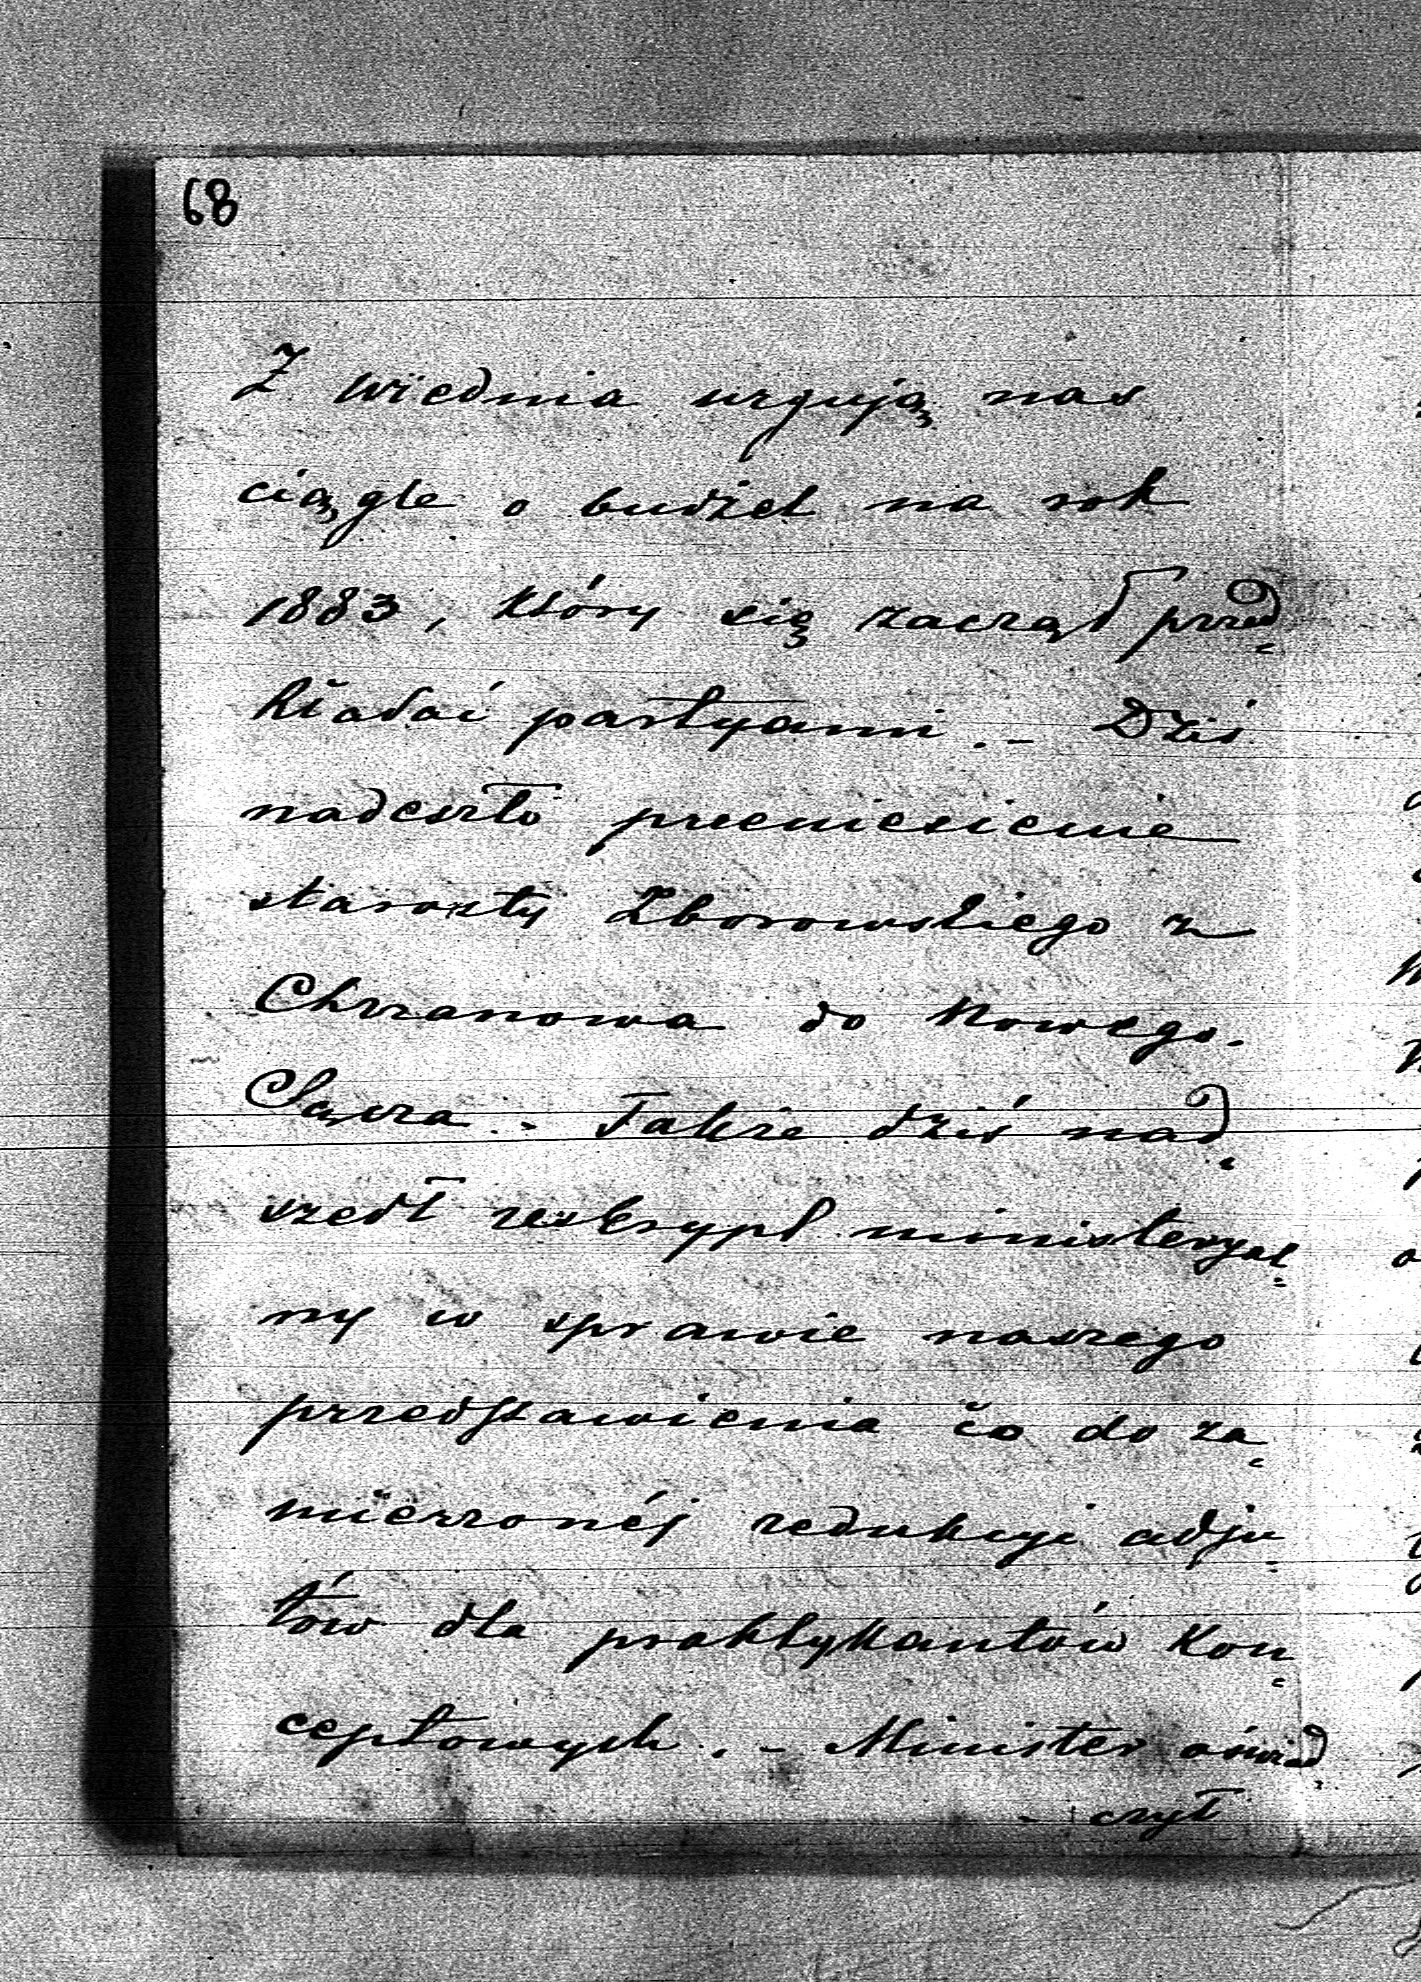 68
Z Wiednia urgują nas
ciągle o budżet na rok
1883, który się zaczął przed
kładać partyami. - Dziś
nadeszło przeniesienie
starosty Zborowskiego z
Chrzanowa do Nowego
Sącza. - Także dziś nad
szedł reskrypt ministeryal
ny w sprawie naszego
przedstawienia co do za
mierzonéj redukcyi adju
tów dla praktykantów kon
ceptowych. - Minister oświad
- czył